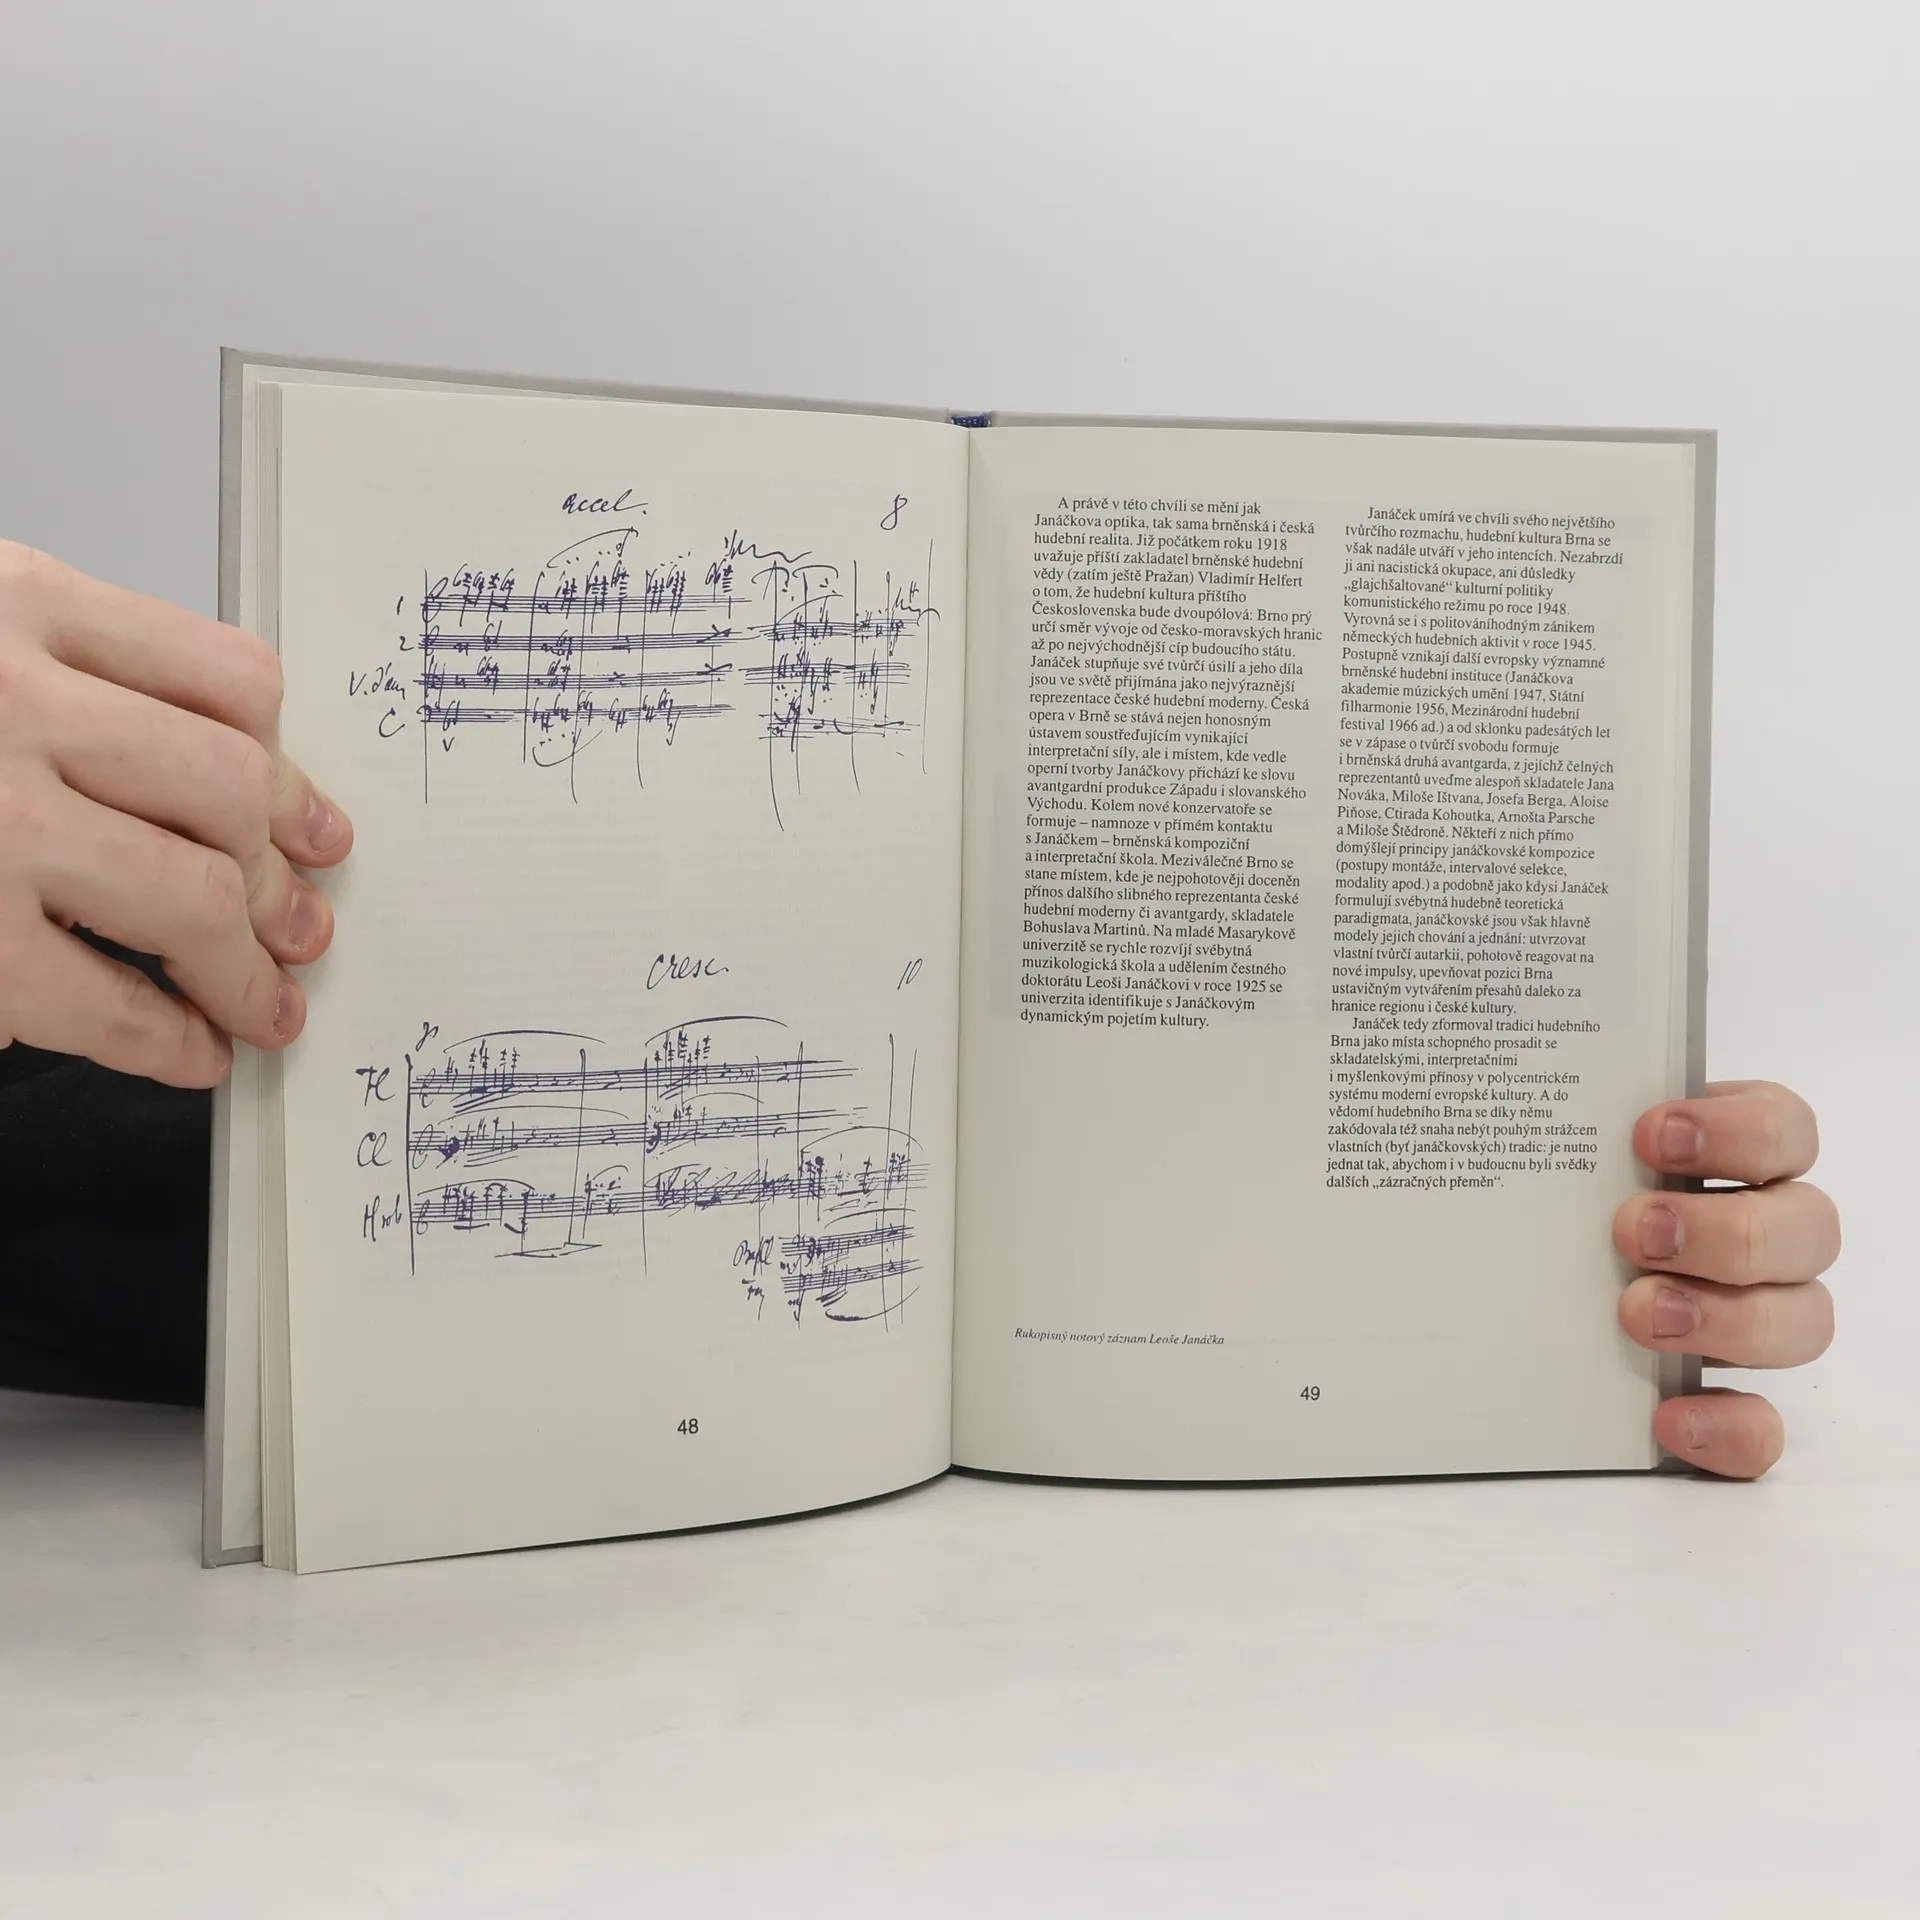 accel.
8
1
2
V. d'am
C
cresc.
10
Fl
Cl
Hob
48
A právě v této chvíli se mění jak
Janáčkova optika, tak sama brněnská i česká
hudební realita. Již počátkem roku 1918
uvažuje příští zakladatel brněnské hudební
vědy (zatím ještě Pražan) Vladimír Helfert
o tom, že hudební kultura příštího
Československa bude dvoupólová: Brno prý
určí směr vývoje od česko-moravských hranic
až po nejvýchodnější cíp budoucího státu.
Janáček stupňuje své tvůrčí úsilí a jeho díla
jsou ve světě přijímána jako nejvýraznější
reprezentace české hudební moderny. Česká
opera v Brně se stává nejen honosným
ústavem soustřeďujícím vynikající
interpretační síly, ale i místem, kde vedle
operní tvorby Janáčkovy přichází ke slovu
avantgardní produkce Západu i slovanského
Východu. Kolem nové konzervatoře se
formuje – namnoze v přímém kontaktu
s Janáčkem – brněnská kompoziční
a interpretační škola. Meziválečné Brno se
stane místem, kde je nejpohotověji doceněn
přínos dalšího slibného reprezentanta české
hudební moderny či avantgardy, skladatele
Bohuslava Martinů. Na mladé Masarykově
univerzitě se rychle rozvíjí svébytná
muzikologická škola a udělením čestného
doktorátu Leoši Janáčkovi v roce 1925 se
univerzita identifikuje s Janáčkovým
dynamickým pojetím kultury.
Janáček umírá ve chvíli svého největšího
tvůrčího rozmachu, hudební kultura Brna se
však nadále utváří v jeho intencích. Nezabrzdí
ji ani nacistická okupace, ani důsledky
„glajchšaltované“ kulturní politiky
komunistického režimu po roce 1948.
Vyrovná se i s politováníhodným zánikem
německých hudebních aktivit v roce 1945.
Postupně vznikají další evropsky významné
brněnské hudební instituce (Janáčkova
akademie múzických umění 1947, Státní
filharmonie 1956, Mezinárodní hudební
festival 1966 ad.) a od sklonku padesátých let
se v zápase o tvůrčí svobodu formuje
i brněnská druhá avantgarda, z jejíchž čelných
reprezentantů uveďme alespoň skladatele Jana
Nováka, Miloše Ištvana, Josefa Berga, Aloise
Piňose, Ctirada Kohoutka, Arnošta Parsche
a Miloše Štědroně. Někteří z nich přímo
domýšlejí principy janáčkovské kompozice
(postupy montáže, intervalové selekce,
modality apod.) a podobně jako kdysi Janáček
formulují svébytná hudebně teoretická
paradigmata, janáčkovské jsou však hlavně
modely jejich chování a jednání: utvrzovat
vlastní tvůrčí autarkii, pohotově reagovat na
nové impulsy, upevňovat pozici Brna
ustavičným vytvářením přesahů daleko za
hranice regionu i české kultury.
Janáček tedy zformoval tradici hudebního
Brna jako místa schopného prosadit se
skladatelskými, interpretačními
i myšlenkovými přínosy v polycentrickém
systému moderní evropské kultury. A do
vědomí hudebního Brna se díky němu
zakódovala též snaha nebýt pouhým strážcem
vlastních (byť janáčkovských) tradic: je nutno
jednat tak, abychom i v budoucnu byli svědky
dalších „zázračných přeměn“.
Rukopisný notový záznam Leoše Janáčka
49